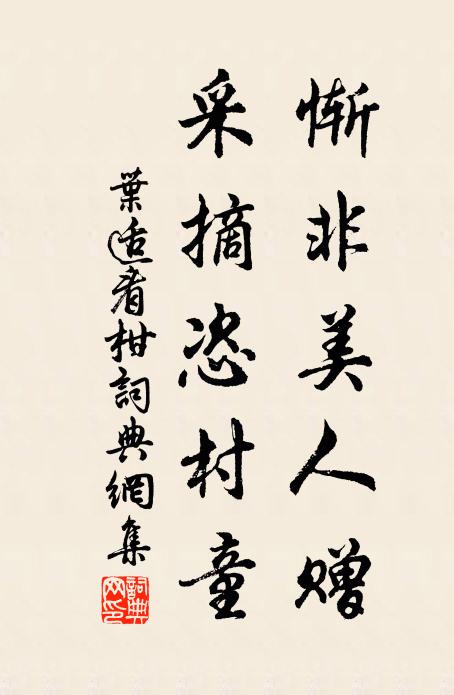 慚非美人贈
采摘恣村童
葉适看柑詞典網集
詞典網印